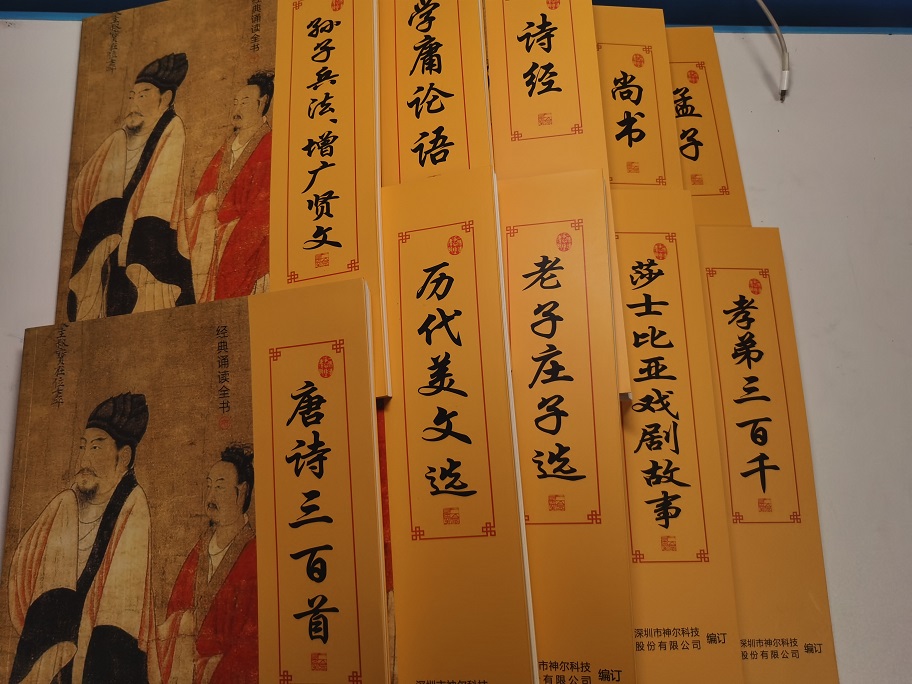 孙子兵法、增广贤文
学庸论语
诗经
尚书
孟子
经典诵读全书
唐诗三百首
历代美文选
老子庄子选
莎士比亚戏剧故事
孝弟三百千
市神尔科技
有限公司
编订
深圳市神尔科技
股份有限公司
编订
深圳市神尔科技
股份有限公司
编订